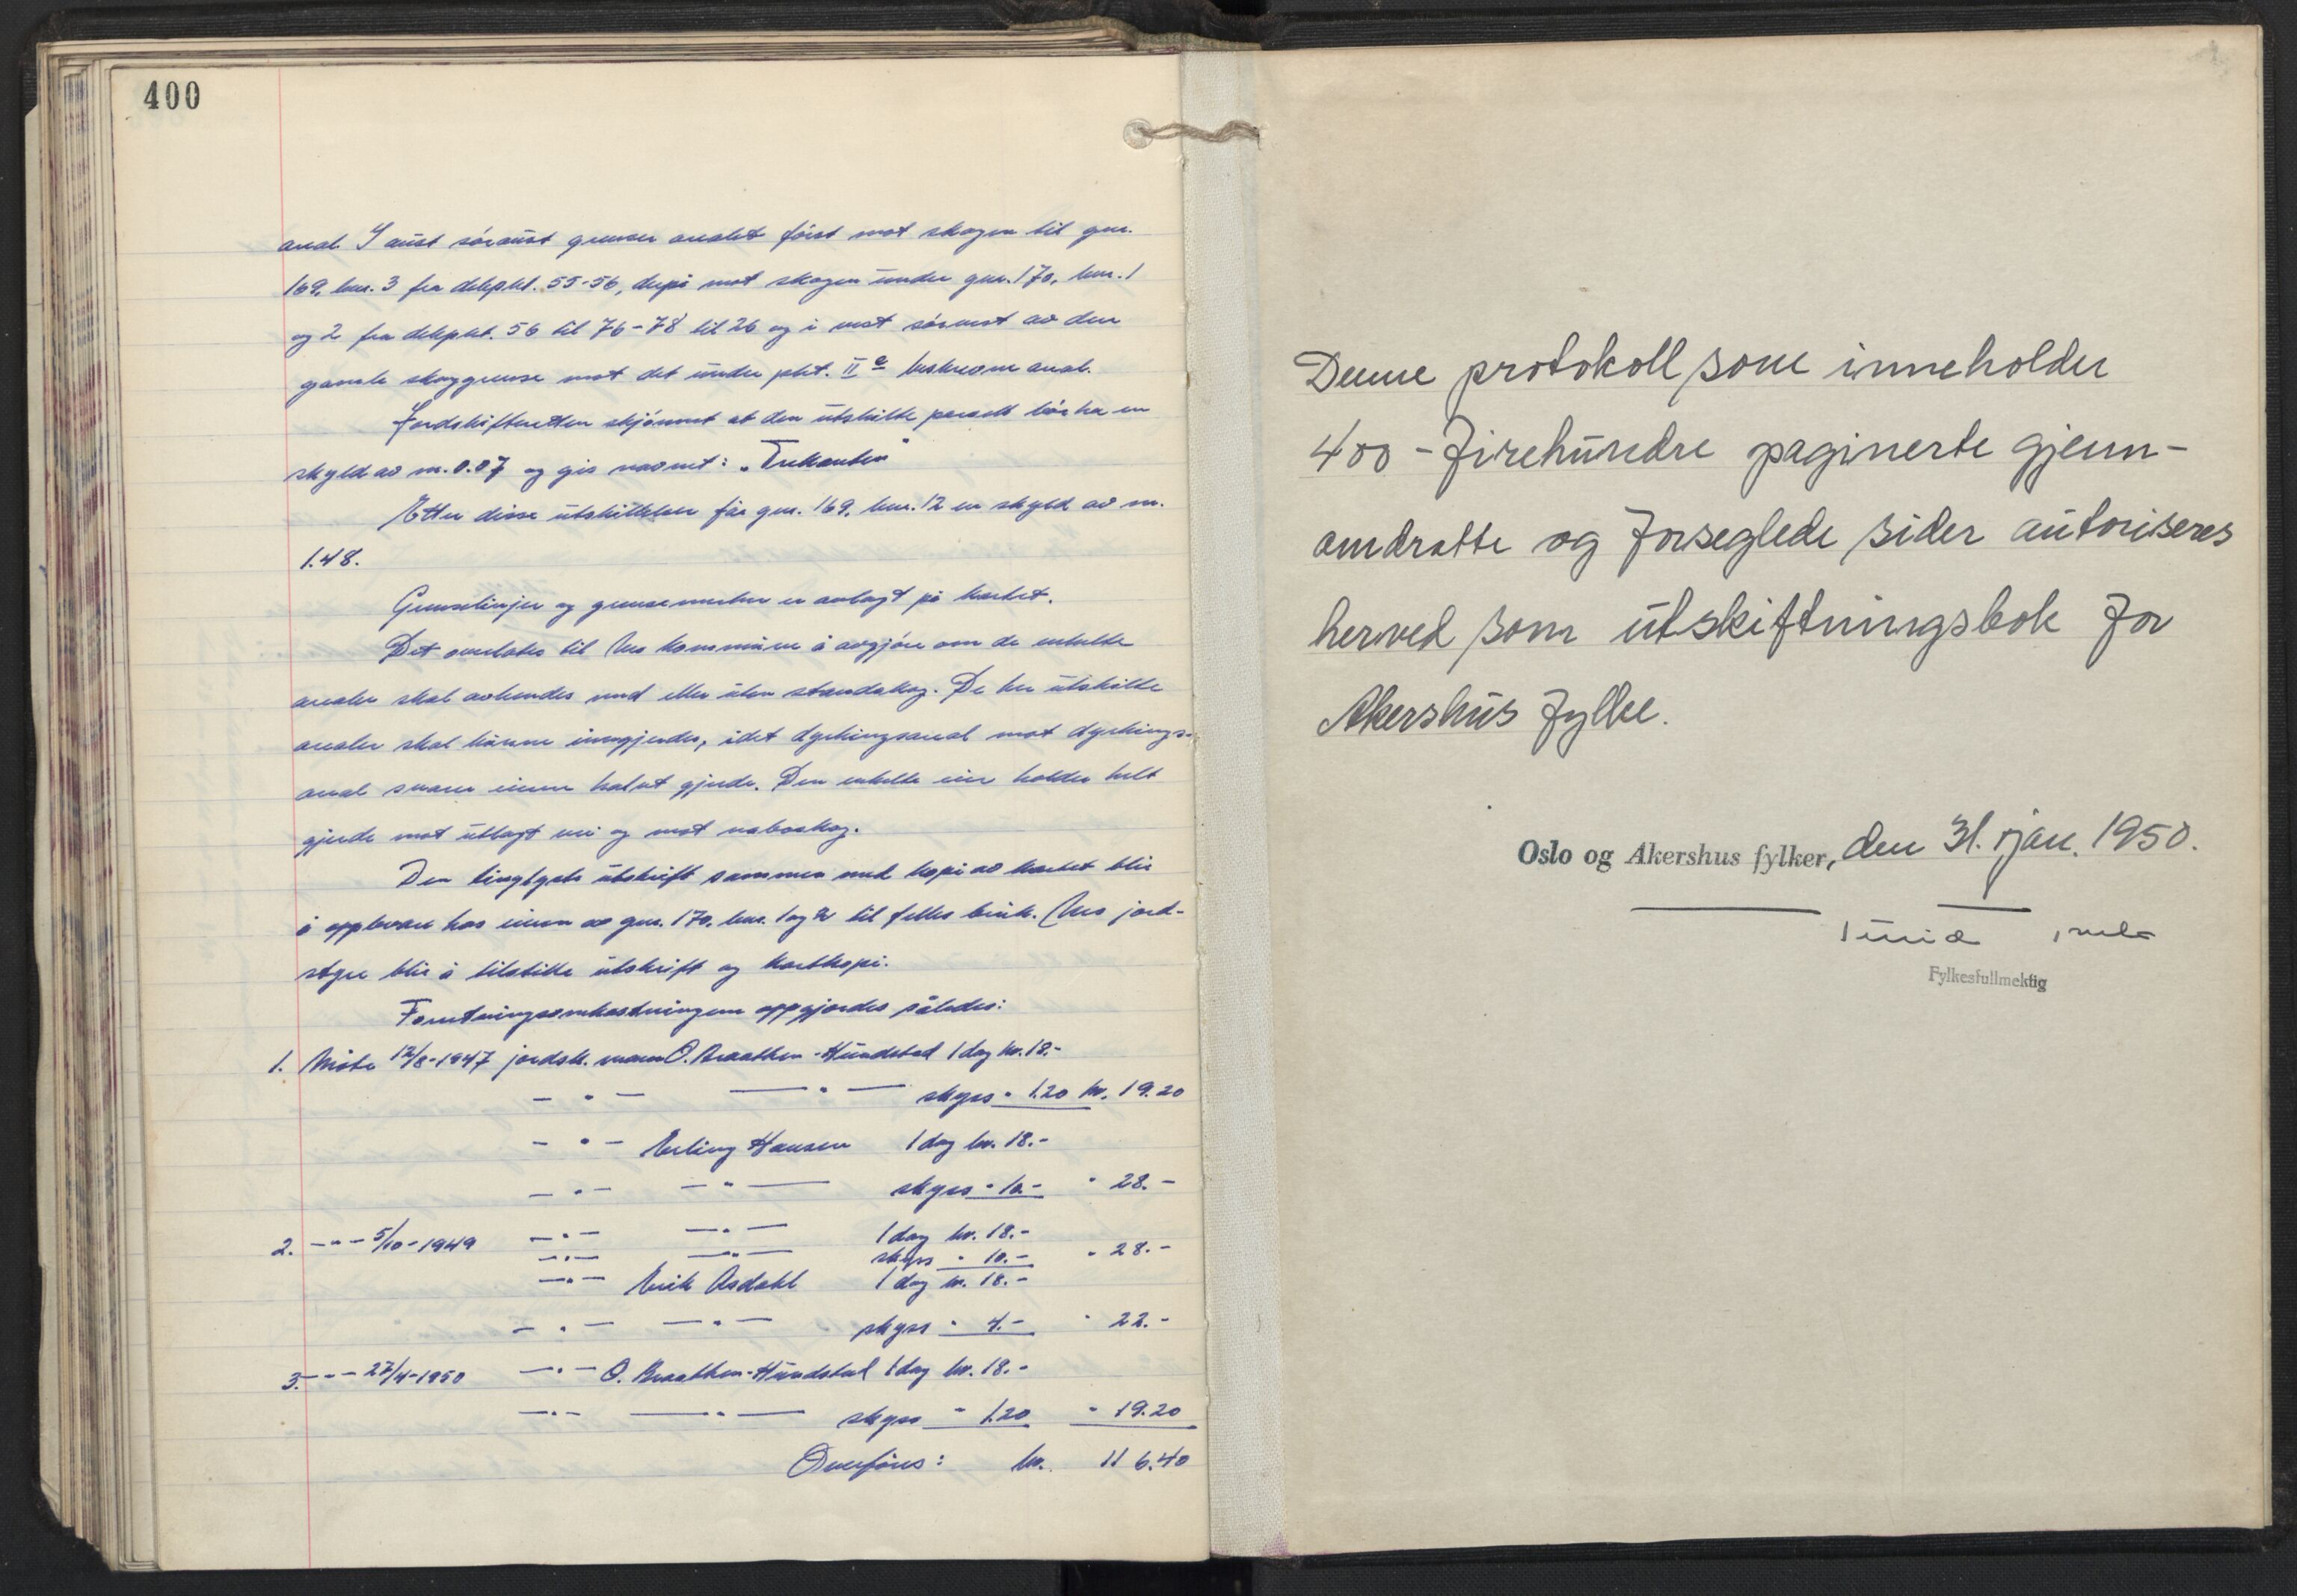 400
areal. I aust söraust grenser arealet först mot skogen til gnr.
169, bnr. 3 fra delepkt. 55-56, derpå mot skogen under gnr. 170, bnr. 1
og 2 fra delepkt. 56 til 76-78 til 26 og i vest sörvest av den
gamle skoggrense mot det under pkt. II e beskrevne areal.
Jordskifteretten skjönnet at den utskilte parsell bör ha en
skyld av m. 0.07 og gis navnet: „Trekanten"
Etter disse utskillelser får gnr. 169, bnr. 12 en skyld av m.
1.48.
Grenselinjer og grensemerker er avlagt på kartet.
Det overlates til Nes kommune å avgjöre om de enkelte
arealer skal avhendes med eller uten standskog. De her utskilte
arealer skal kunne inngjerdes, idet dyrkingsareal mot dyrkings-
areal svarer innen halvt gjerde. Den enkelte eier holder helt
gjerde mot utlagt vei og mot naboskog.
Den tinglyste utskrift sammen med kopi av kartet blir
å oppbevare hos eieren av gnr. 170, bnr. 1 og 2 til felles bruk. Nes jord-
styre blir å tilstille utskrift og kartkopi.
Forretningsomkostningene oppgjordes således:
1. Möte 12/8-1947 jordsk. mann O. Braathen-Hundstad 1 dag kr. 18.-
- " - - " - skyss " 1.20 kr. 19.20
- " - Erling Hansen 1 dag kr. 18.-
- " - - " - skyss " 10.- " 28.-
2. - " - 5/10-1949 - " - - " - 1 dag kr. 18.-
- " - - " - skyss " 10.- " 28.-
- " - Erik Asdahl 1 dag kr. 18.-
- " - - " - skyss " 4.- " 22.-
3. - " - 27/4-1950 - " - O. Braathen-Hundstad 1 dag kr. 18.-
- " - - " - skyss " 1.20 " 19.20
Overföres: kr. 116.40
Denne protokoll som inneholder
400 - firehundre paginerte gjenn-
omdratte og forseglede sider autoriseres
herved som utskiftningsbok for
Akershus fylke.
Oslo og Akershus fylker, den 31. jan. 1950.
Fylkesfullmektig